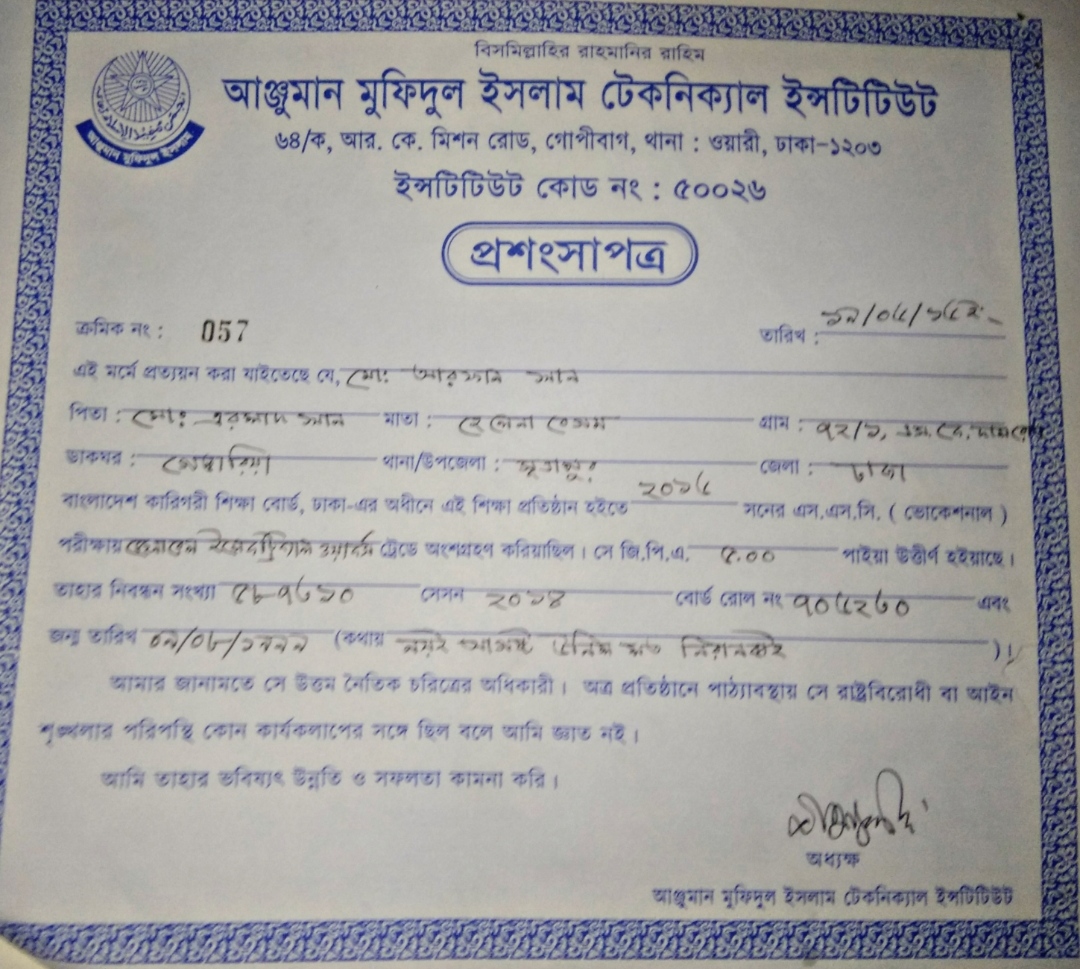 বিসমিল্লাহির রাহমানির রাহিম
আঞ্জুমান মুফিদুল ইসলাম টেকনিক্যাল ইন্সটিটিউট
আঞ্জুমান মুফিদুল ইসলাম
৬৪/ক, আর. কে. মিশন রোড, গোপীবাগ, থানা : ওয়ারী, ঢাকা-১২০৩
ইন্সটিটিউট কোড নং : ৫০০২৬
প্রশংসাপত্র
ক্রমিক নং : 057
তারিখ :
এই মর্মে প্রত্যয়ন করা যাইতেছে যে, মোঃ আরফান খান
পিতা : মোঃ এরশাদ খান মাতা : হেলেনা বেগম গ্রাম : ৭২/১,
ডাকঘর : গেন্ডারিয়া থানা/উপজেলা : সূত্রাপুর জেলা : ঢাকা
বাংলাদেশ কারিগরী শিক্ষা বোর্ড, ঢাকা-এর অধীনে এই শিক্ষা প্রতিষ্ঠান হইতে ২০১৫ সনের এস.এস.সি. ( ভোকেশনাল )
পরীক্ষায় জেনারেল ইলেকট্রিক্যাল ওয়ার্কস ট্রেডে অংশগ্রহণ করিয়াছিল। সে জি.পি.এ. ৫.০০ পাইয়া উত্তীর্ণ হইয়াছে।
তাহার নিবন্ধন সংখ্যা সেসন ২০১৪ বোর্ড রোল নং এবং
জন্ম তারিখ (কথায় )।
আমার জানামতে সে উত্তম নৈতিক চরিত্রের অধিকারী। অত্র প্রতিষ্ঠানে পাঠ্যাবস্থায় সে রাষ্ট্রবিরোধী বা আইন
শৃঙ্খলার পরিপন্থি কোন কার্যকলাপের সঙ্গে ছিল বলে আমি জ্ঞাত নই।
আমি তাহার ভবিষ্যৎ উন্নতি ও সফলতা কামনা করি।
অধ্যক্ষ
আঞ্জুমান মুফিদুল ইসলাম টেকনিক্যাল ইন্সটিটিউট